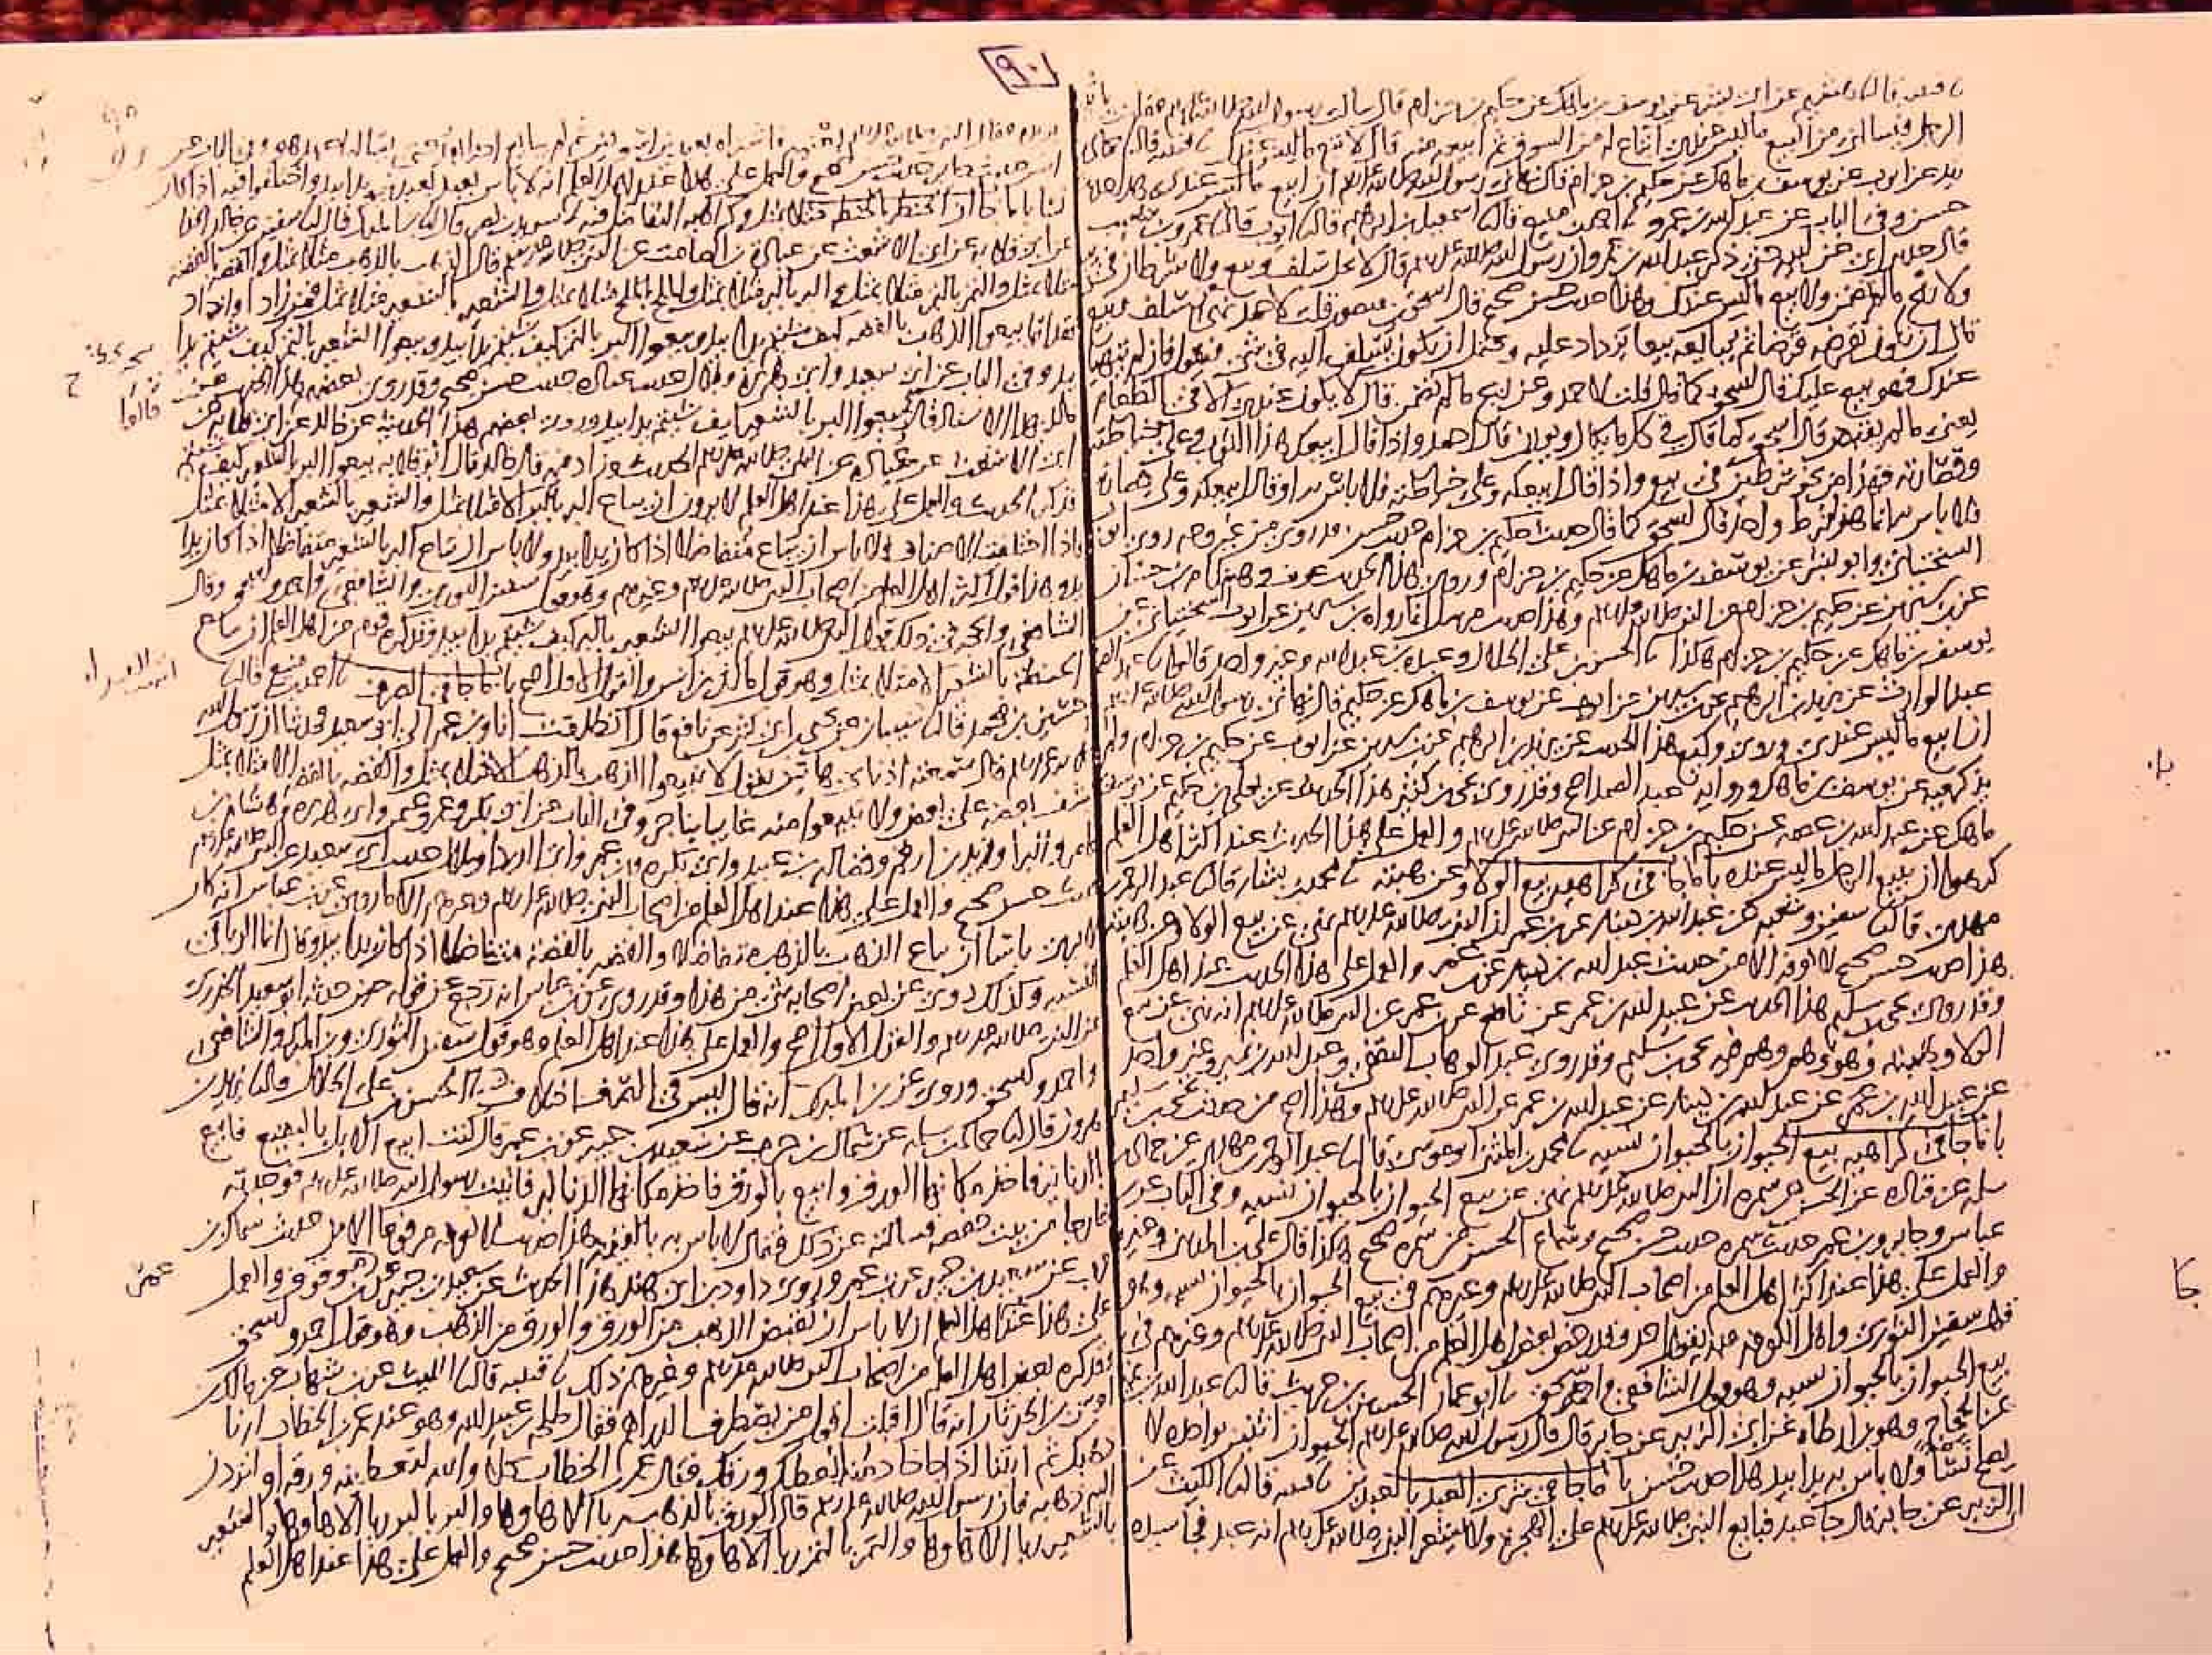 ٩٠
قتيبة قال نا هشيم عن ابي بشر عن يوسف بن ماهك عن حكيم بن حزام قال سالت رسول الله صلى الله عليه وسلم فقلت ياتيني
الرجل فيسالني من البيع ما ليس عندي ابتاع له من السوق ثم ابيعه منه قال لا تبع ما ليس عندك نا قتيبة قال نا حماد
بن زيد عن ايوب عن يوسف بن ماهك عن حكيم بن حزام قال نهاني رسول الله صلى الله عليه وسلم ان ابيع ما ليس عندي هذا حديث
حسن وفي الباب عن عبد الله بن عمرو نا احمد بن منيع قال نا اسمعيل بن ابراهيم قال نا ايوب قال نا عمرو بن شعيب
قال حدثني ابي عن ابيه حتى ذكر عبد الله بن عمرو ان رسول الله صلى الله عليه وسلم قال لا يحل سلف وبيع ولا شرطان في بيع
ولا ربح ما لم يضمن ولا بيع ما ليس عندك وهذا حديث حسن صحيح قال اسحق بن منصور قلت لاحمد ما معنى نهى عن سلف وبيع
قال ان يكون يقرضه قرضا ثم يبايعه بيعا يزداد عليه ويحتمل ان يكون يسلف اليه في شيء فيقول ان لم يتهيا
عندك فهو بيع عليك قال اسحق كما قال قلت لاحمد وعن بيع ما لم تضمن قال لا يكون عندي الا في الطعام
يعني ما لم يقبض قال اسحق كما قال في كل ما يكال ويوزن قال احمد واذا قال ابيعك هذا الثوب وعلي خياطته
وقصارته فهذا من نحو شرطين في بيع واذا قال ابيعكه وعلي خياطته فلا باس به او قال ابيعكه وعلي قصارته
فلا باس به انما هو شرط واحد قال اسحق كما قال حديث حكيم بن حزام حديث حسن قد روي من غير وجه روى ايوب
السختياني وابو بشر عن يوسف بن ماهك عن حكيم بن حزام وروى هذا الحديث عوف وهشام بن حسان
عن ابن سيرين عن حكيم بن حزام عن النبي صلى الله عليه وسلم وهذا حديث مرسل انما رواه ابن سيرين عن ايوب السختياني عن
يوسف بن ماهك عن حكيم بن حزام هكذا نا الحسن بن علي الخلال وعبدة بن عبد الله وغير واحد قالوا نا عبد الصمد بن
عبد الوارث عن يزيد بن ابراهيم عن ابن سيرين عن ايوب عن يوسف بن ماهك عن حكيم قال نهاني رسول الله صلى الله عليه وسلم
ان ابيع ما ليس عندي وروى وكيع هذا الحديث عن يزيد بن ابراهيم عن ابن سيرين عن ايوب عن حكيم بن حزام ولم
يذكر فيه عن يوسف بن ماهك ورواية عبد الصمد اصح وقد روى يحيى بن ابي كثير هذا الحديث عن يعلى بن حكيم عن يوسف بن
ماهك عن عبد الله بن عصمة عن حكيم بن حزام عن النبي صلى الله عليه وسلم والعمل على هذا الحديث عند اكثر اهل العلم
كرهوا ان يبيع الرجل ما ليس عنده باب ما جا في كراهية بيع الولا وعن هبته نا محمد بن بشار قال نا عبد الرحمن بن
مهدي قال نا سفين وشعبة عن عبد الله بن دينار عن ابن عمر ان النبي صلى الله عليه وسلم نهى عن بيع الولا وعن هبته
هذا حديث حسن صحيح لا نعرفه الا من حديث عبد الله بن دينار عن ابن عمر والعمل على هذا الحديث عند اهل العلم
وقد روى يحيى بن سليم هذا الحديث عن عبيد الله بن عمر عن نافع عن ابن عمر عن النبي صلى الله عليه وسلم انه نهى عن بيع
الولا وهبته وهو وهم وهم فيه يحيى بن سليم وقد روى عبد الوهاب الثقفي وعبد الله بن نمير وغير واحد
عن عبيد الله بن عمر عن عبد الله بن دينار عن عبد الله بن عمر عن النبي صلى الله عليه وسلم وهذا اصح من حديث يحيى بن سليم
باب ما جا في كراهية بيع الحيوان بالحيوان نسية نا محمد بن المثنى ابو موسى قال نا عبد الرحمن بن مهدي عن حماد بن
سلمة عن قتادة عن الحسن عن سمرة ان النبي صلى الله عليه وسلم نهى عن بيع الحيوان بالحيوان نسية وفي الباب عن ابن
عباس وجابر وابن عمر حديث سمرة حديث حسن صحيح وسماع الحسن من سمرة صحيح هكذا قال علي بن المديني وغيره
والعمل على هذا عند اكثر اهل العلم من اصحاب النبي صلى الله عليه وسلم وغيرهم في بيع الحيوان بالحيوان نسية وهو
قول سفين الثوري واهل الكوفة وبه يقول احمد وقد رخص بعض اهل العلم من اصحاب النبي صلى الله عليه وسلم وغيرهم في
بيع الحيوان بالحيوان نسية وهو قول الشافعي واسحق نا ابو عمار الحسين بن حريث قال نا عبد الله بن نمير
عن الحجاج وهو ابن ارطاة عن ابي الزبير عن جابر قال قال رسول الله صلى الله عليه وسلم الحيوان اثنين بواحد لا
يصلح نسئا ولا باس به يدا بيد هذا حديث حسن باب ما جا في شرى العبد بالعبدين نا قتيبة قال نا الليث عن
ابي الزبير عن جابر قال جا عبد فبايع النبي صلى الله عليه وسلم على الهجرة ولا يشعر النبي صلى الله عليه وسلم انه عبد فجا سيده
يريده فقال النبي صلى الله عليه وسلم بعنيه فاشتراه بعبدين اسودين ثم لم يبايع احدا بعد حتى يساله اعبد هو وفي الباب عن
انس حديث جابر حديث حسن صحيح والعمل على هذا عند اهل العلم انه لا باس بعبد بعبدين يدا بيد واختلفوا فيه اذا كان
نسئا باب ما جا ان الحنطة بالحنطة مثلا بمثل وكراهية التفاضل فيه نا سويد بن نصر قال نا ابن المبارك قال نا سفين عن خالد الحذا
عن ابي قلابة عن ابي الاشعث عن عبادة بن الصامت عن النبي صلى الله عليه وسلم قال الذهب بالذهب مثلا بمثل والفضة بالفضة
مثلا بمثل والتمر بالتمر مثلا بمثل والبر بالبر مثلا بمثل والملح بالملح مثلا بمثل والشعير بالشعير مثلا بمثل فمن زاد او ازداد
فقد اربا بيعوا الذهب بالفضة كيف شئتم يدا بيد وبيعوا البر بالتمر كيف شئتم يدا بيد وبيعوا الشعير بالتمر كيف شئتم يدا
بيد وفي الباب عن ابي سعيد وابي هريرة وبلال حديث عبادة حديث حسن صحيح وقد روى بعضهم هذا الحديث عن
خالد بهذا الاسناد قال بيعوا البر بالشعير كيف شئتم يدا بيد وروى بعضهم هذا الحديث عن خالد عن ابي قلابة عن
ابي الاشعث عن عبادة عن النبي صلى الله عليه وسلم الحديث وزاد فيه قال خالد قال ابو قلابة بيعوا البر بالشعير كيف شئتم
فذكر الحديث والعمل على هذا عند اهل العلم لا يرون ان يباع البر بالبر الا مثلا بمثل والشعير بالشعير الا مثلا بمثل
فاذا اختلفت الاصناف فلا باس ان يباع متفاضلا اذا كان يدا بيد ولا باس ان يباع البر بالشعير متفاضلا اذا كان يدا
بيد وهذا قول اكثر اهل العلم من اصحاب النبي صلى الله عليه وسلم وغيرهم وهو قول سفين الثوري والشافعي واحمد واسحق وقال
الشافعي والحجة في ذلك قول النبي صلى الله عليه وسلم بيعوا الشعير بالبر كيف شئتم يدا بيد وقد كره قوم من اهل العلم ان يباع
الحنطة بالشعير الا مثلا بمثل وهو قول مالك بن انس والقول الاول اصح باب ما جا في الصرف نا احمد بن منيع قال نا
حسين بن محمد قال نا شيبان عن يحيى بن ابي كثير عن نافع قال انطلقت انا وابن عمر الى ابي سعيد فحدثنا ان رسول الله
صلى الله عليه وسلم قال سمعته اذناي هاتين يقول لا تبيعوا الذهب بالذهب الا مثلا بمثل والفضة بالفضة الا مثلا بمثل
لا يشف بعضه على بعض ولا تبيعوا منه غايبا بناجز وفي الباب عن ابي بكر وعمر وعثمن وابي هريرة وهشام بن
عامر والبرا وزيد بن ارقم وفضالة بن عبيد وابي بكرة وابن عمر وابي الدردا وبلال حديث ابي سعيد عن النبي صلى الله عليه وسلم
حديث حسن صحيح والعمل على هذا عند اهل العلم من اصحاب النبي صلى الله عليه وسلم وغيرهم الا ما روي عن ابن عباس انه كان
لا يرى باسا ان يباع الذهب بالذهب متفاضلا والفضة بالفضة متفاضلا اذا كان يدا بيد وقال انما الربا في
النسية وكذلك روي عن بعض اصحابه شيء من هذا وقد روي عن ابن عباس انه رجع عن قوله حين حدثه ابو سعيد الخدري
عن النبي صلى الله عليه وسلم والقول الاول اصح والعمل على هذا عند اهل العلم وهو قول سفين الثوري وابن المبارك والشافعي
واحمد واسحق وروي عن ابن المبارك انه قال ليس في الصرف اختلاف نا الحسن بن علي الخلال قال نا يزيد بن
هرون قال نا حماد بن سلمة عن سماك بن حرب عن سعيد بن جبير عن ابن عمر قال كنت ابيع الابل بالبقيع فابيع
بالدنانير فاخذ مكانها الورق وابيع بالورق فاخذ مكانها الدنانير فاتيت رسول الله صلى الله عليه وسلم فوجدته
خارجا من بيت حفصة فسالته عن ذلك فقال لا باس به بالقيمة هذا حديث لا نعرفه مرفوعا الا من حديث سماك بن
حرب عن سعيد بن جبير عن ابن عمر وروى داود بن ابي هند هذا الحديث عن سعيد بن جبير عن ابن عمر موقوف والعمل
على هذا عند اهل العلم ان لا باس ان يقتضي الذهب من الورق والورق من الذهب وهو قول احمد واسحق
وقد كره بعض اهل العلم من اصحاب النبي صلى الله عليه وسلم وغيرهم ذلك نا قتيبة قال نا الليث عن ابن شهاب عن مالك بن
اوس بن الحدثان انه قال اقبلت اقول من يصطرف الدراهم فقال طلحة بن عبيد الله وهو عند عمر بن الخطاب ارنا
ذهبك ثم ايتنا اذا جا خادمنا نعطك ورقك فقال عمر بن الخطاب كلا والله لتعطينه ورقه او لتردن
اليه ذهبه فان رسول الله صلى الله عليه وسلم قال الورق بالذهب ربا الا ها وها والبر بالبر ربا الا ها وها والشعير
بالشعير ربا الا ها وها والتمر بالتمر ربا الا ها وها هذا حديث حسن صحيح والعمل على هذا عند اهل العلم